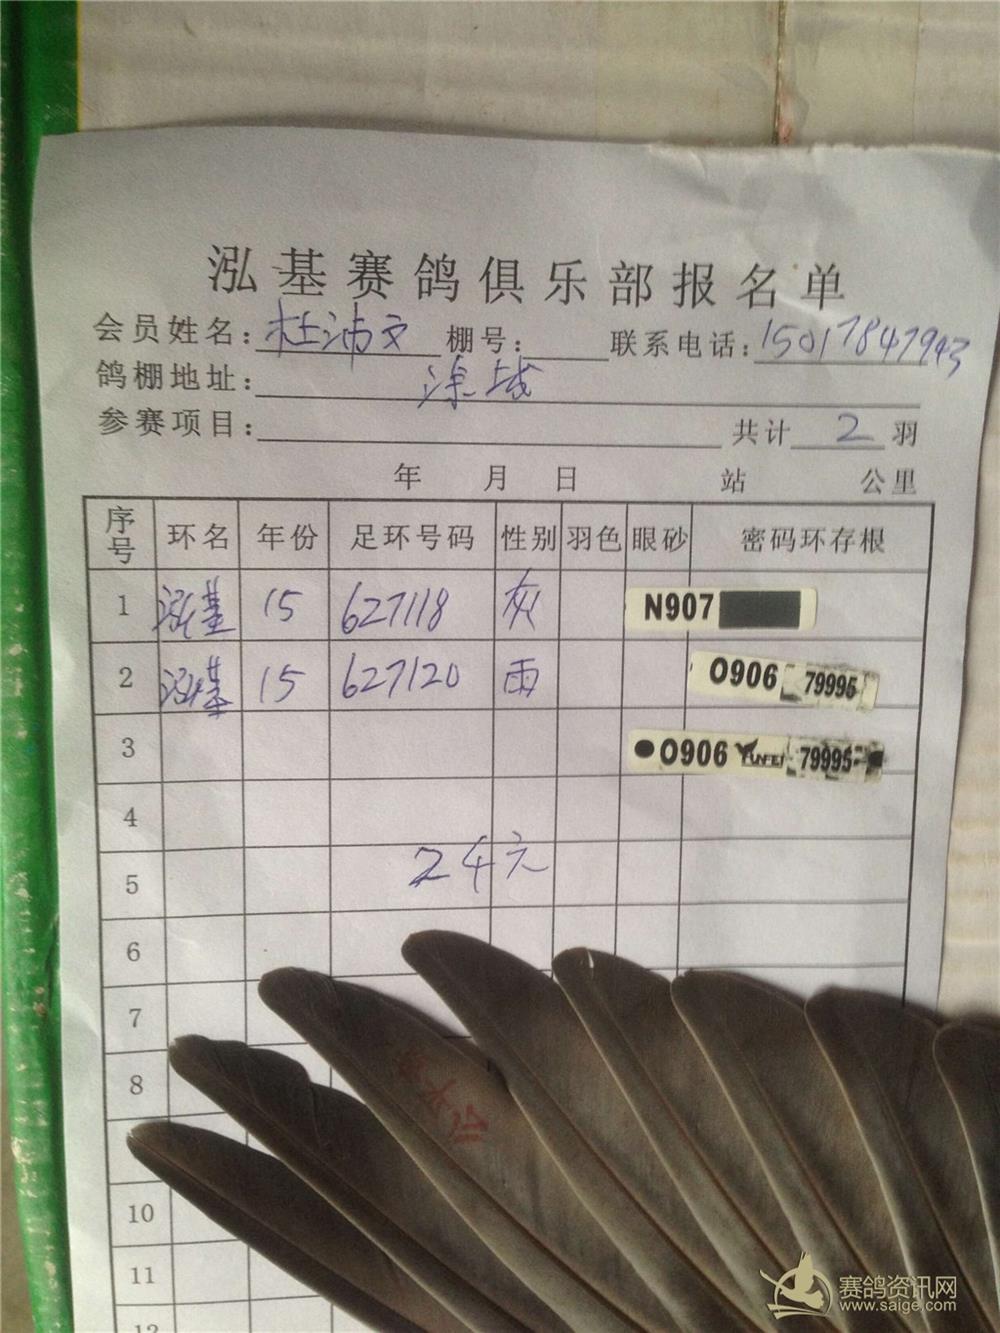 泓基赛鸽俱乐部报名单
会员姓名: 杜沛文 棚号: 联系电话: 15017847943
鸽棚地址:
参赛项目: 共计 2 羽
年 月 日 站 公里
序号 环名 年份 足环号码 性别 羽色 眼砂 密码环存根
1 泓基 15 627118 灰 N907
2 泓基 15 627120 雨 O906 79995
3 O906 YUNFEI 79995
4
5 24元
6
7
8
10
11
12
赛鸽资讯网
www.saige.com